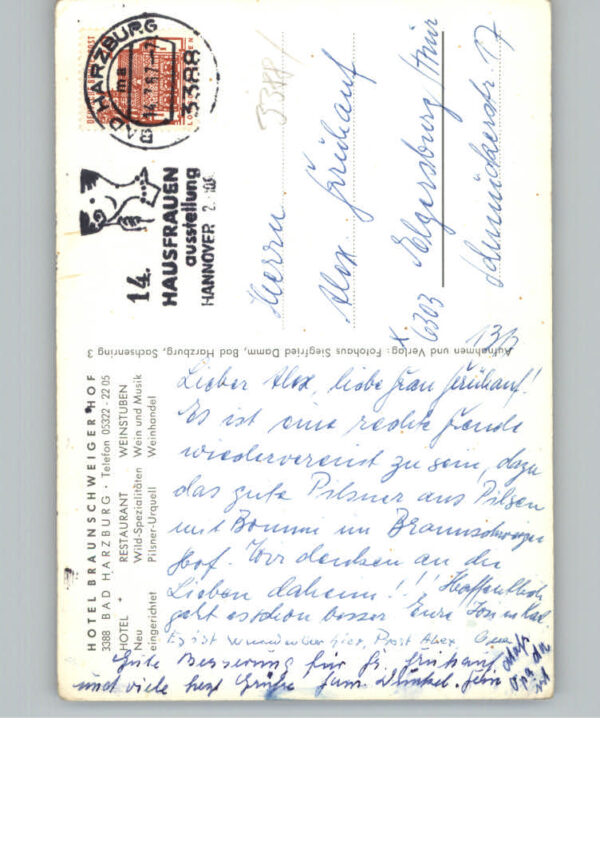 HOTEL BRAUNSCHWEIGER HOF
3388 BAD HARZBURG · Telefon 05322 - 22 05
HOTEL * RESTAURANT WEINSTUBEN
Neu Wild-Spezialitäten Wein und Musik
eingerichtet Pilsner-Urquell Weinhandel
Aufnahmen und Verlag: Fotohaus Siegfried Damm, Bad Harzburg, Sachsenring 3
BAD HARZBURG
3388
14.
HAUSFRAUEN
ausstellung
HANNOVER
3388/
Herrn
Alex Frühauf
6303 Elgersburg/Thür
Schmückerstr 17
Lieber Alex, liebe Frau Frühauf!
Es ist eine rechte Freude
wiedervereint zu sein, dazu
das gute Pilsner aus Pilsen
mit Bommi im Braunschweiger
Hof. Wir denken an die
Lieben daheim!! Hoffentlich
geht es schon besser Eure
Es ist wunderbar hier, Prost Alex.
Gute Besserung für Fr. Frühauf
und viele herzl Grüße Fam.